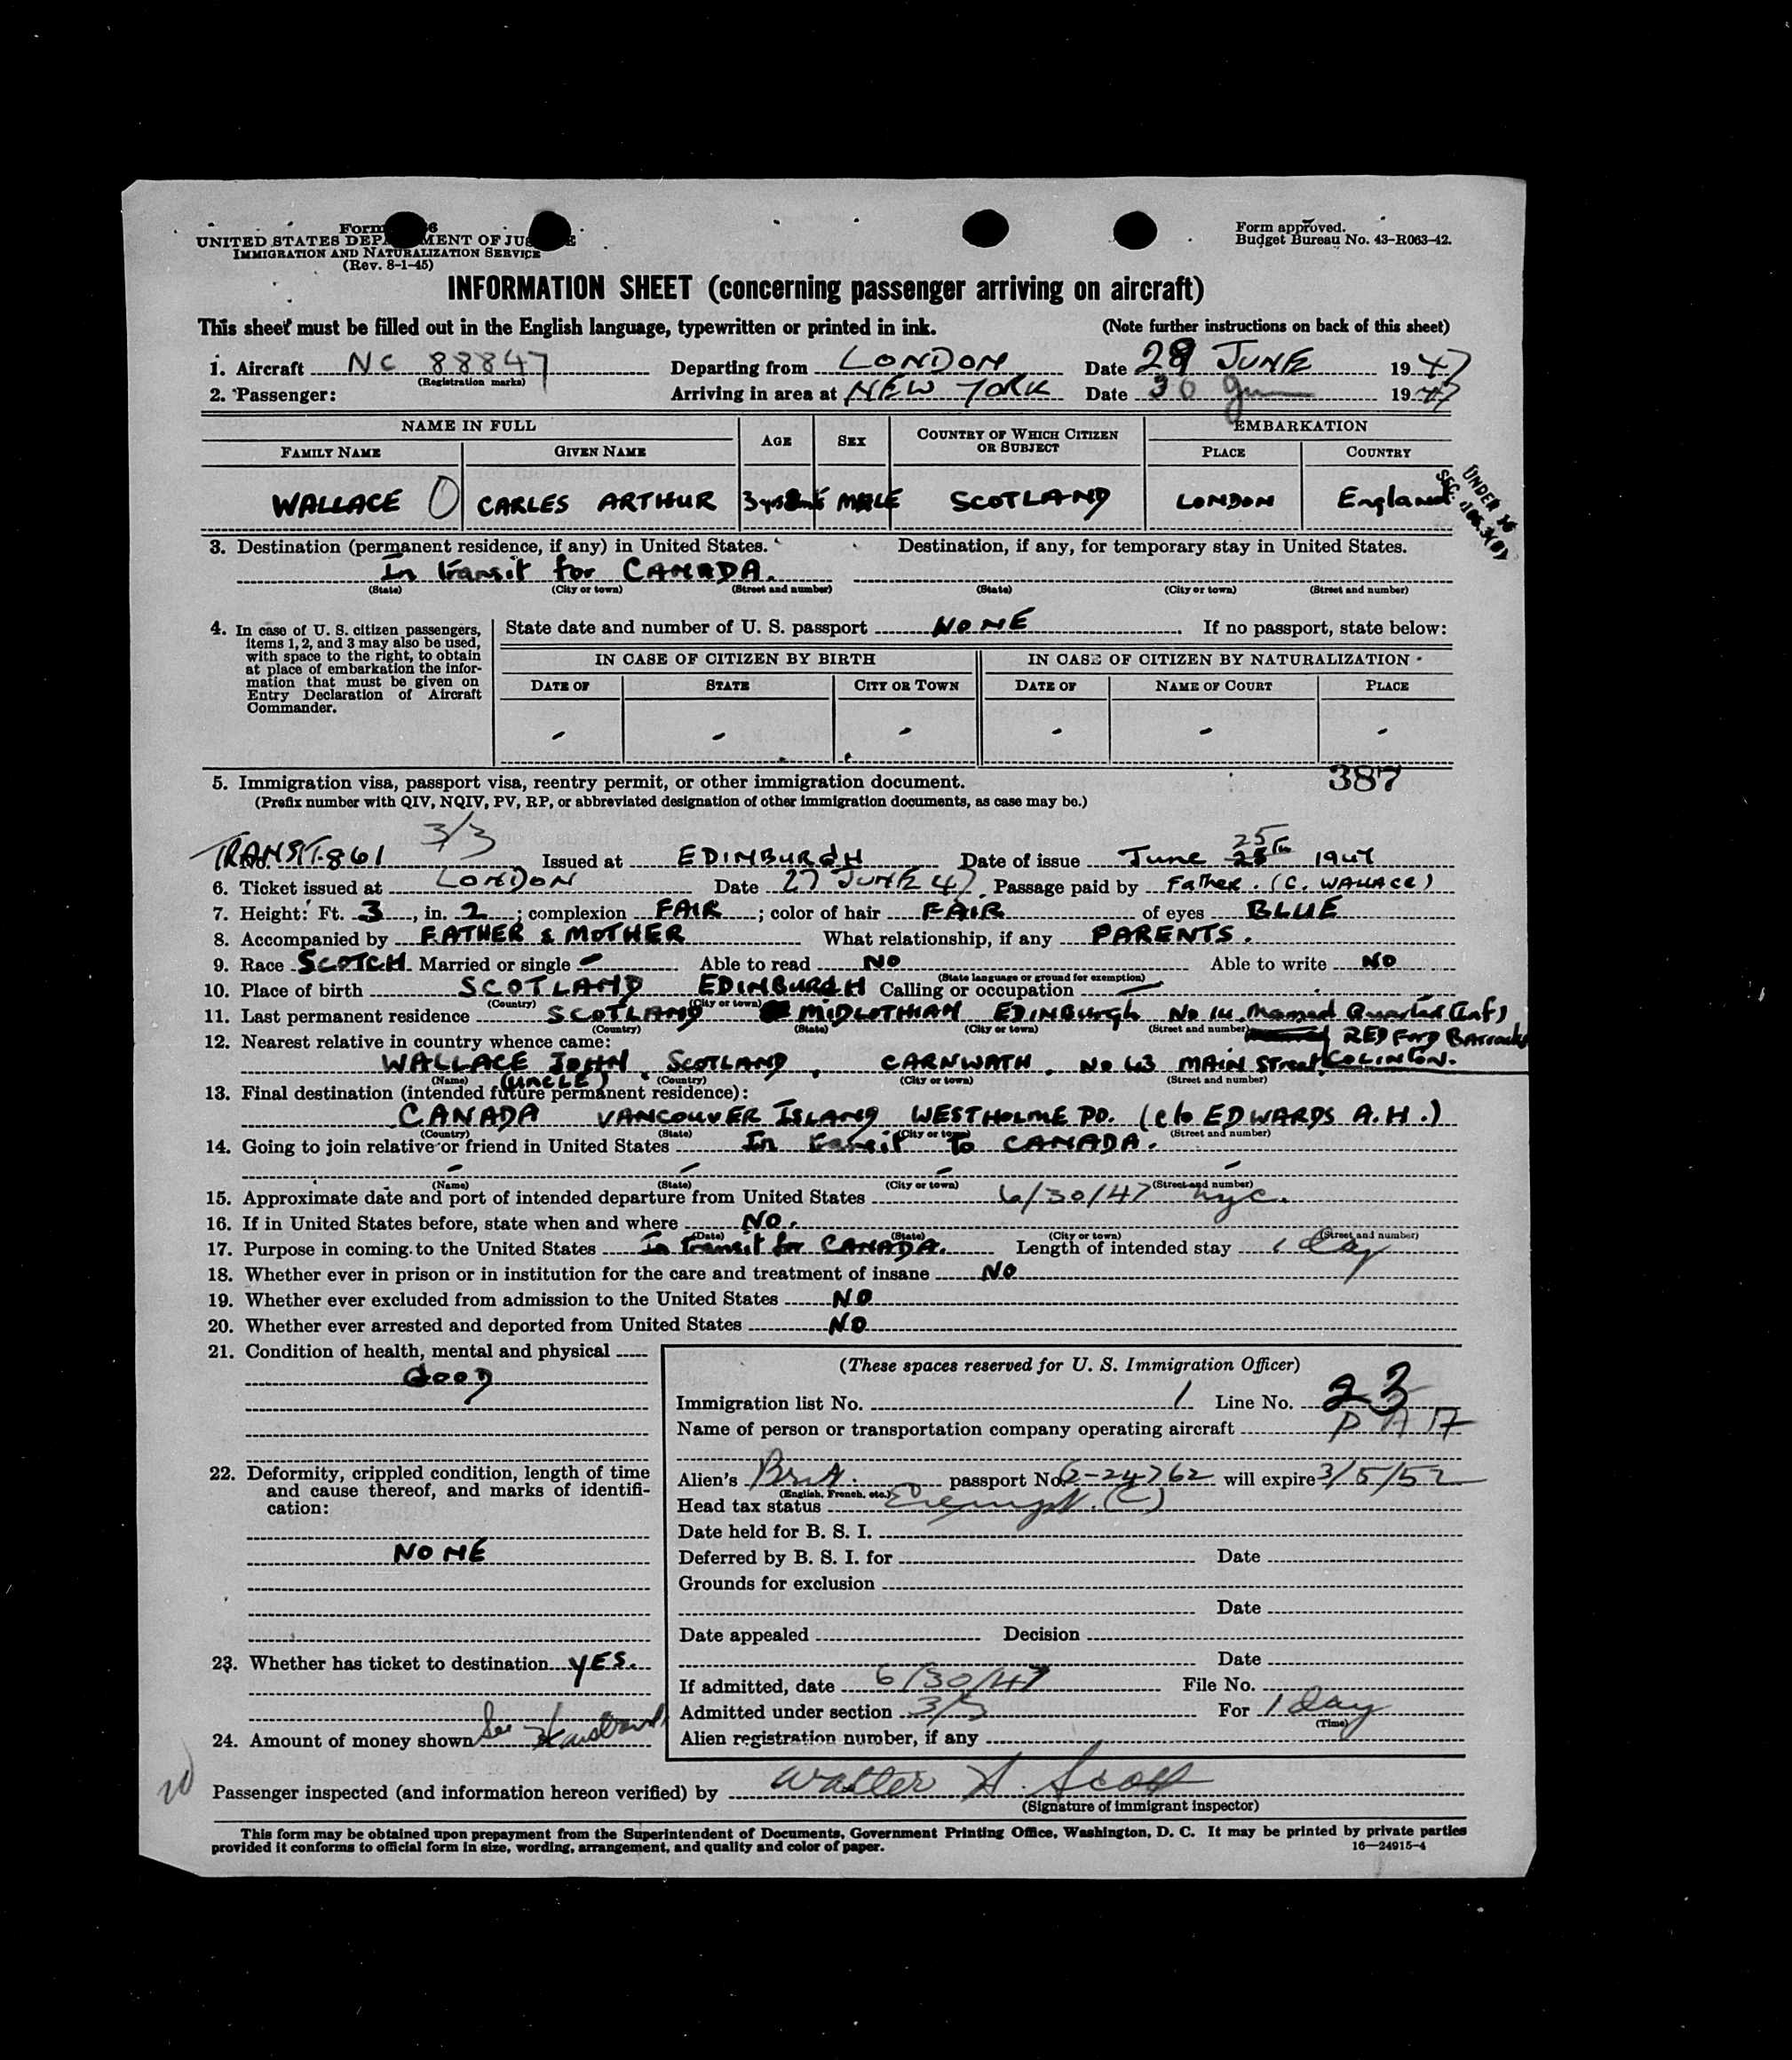 Form 6
UNITED STATES DEPARTMENT OF JUSTICE
IMMIGRATION AND NATURALIZATION SERVICE
(Rev. 8-1-45)
Form approved.
Budget Bureau No. 43-R063-42.
INFORMATION SHEET (concerning passenger arriving on aircraft)
This sheet must be filled out in the English language, typewritten or printed in ink. (Note further instructions on back of this sheet)
1. Aircraft NC 88847 Departing from LONDON Date 29 JUNE 1947
(Registration marks)
2. Passenger: Arriving in area at NEW YORK Date 30 Jun 1947
NAME IN FULL AGE SEX COUNTRY OF WHICH CITIZEN OR SUBJECT EMBARKATION
FAMILY NAME GIVEN NAME PLACE COUNTRY
WALLACE CARLES ARTHUR MALE SCOTLAND LONDON England
UNDER 16
SEC.
3. Destination (permanent residence, if any) in United States. Destination, if any, for temporary stay in United States.
In transit for CANADA.
(State) (City or town) (Street and number) (State) (City or town) (Street and number)
4. In case of U. S. citizen passengers, items 1, 2, and 3 may also be used, with space to the right, to obtain at place of embarkation the information that must be given on Entry Declaration of Aircraft Commander.
State date and number of U. S. passport NONE If no passport, state below:
IN CASE OF CITIZEN BY BIRTH IN CASE OF CITIZEN BY NATURALIZATION
DATE OF STATE CITY OR TOWN DATE OF NAME OF COURT PLACE
- - - - - -
387
5. Immigration visa, passport visa, reentry permit, or other immigration document.
(Prefix number with QIV, NQIV, PV, RP, or abbreviated designation of other immigration documents, as case may be.)
3/3
TRANSIT.861 Issued at EDINBURGH Date of issue June 25th 1947
6. Ticket issued at LONDON Date 27 JUNE 47. Passage paid by Father. (C. WALLACE)
7. Height: Ft. 3, in. 2; complexion FAIR; color of hair FAIR of eyes BLUE
8. Accompanied by FATHER & MOTHER What relationship, if any PARENTS.
9. Race SCOTCH Married or single - Able to read NO Able to write NO
(State language or ground for exemption)
10. Place of birth SCOTLAND EDINBURGH Calling or occupation -
(Country) (City or town)
11. Last permanent residence SCOTLAND MIDLOTHIAN EDINBURGH No 14 Married Quarters (Inf)
(Country) (State) (City or town) (Street and number)
REDFORD Barracks
12. Nearest relative in country whence came:
WALLACE JOHN, SCOTLAND, CARNWATH, No 63 MAIN Street, COLINTON.
(Name) (UNCLE) (Country) (City or town) (Street and number)
13. Final destination (intended future permanent residence):
CANADA VANCOUVER ISLAND WESTHOLME PO. (c/o EDWARDS A.H.)
(Country) (State) (City or town) (Street and number)
14. Going to join relative or friend in United States In transit To CANADA.
- - - -
(Name) (State) (City or town) (Street and number)
15. Approximate date and port of intended departure from United States 6/30/47 nyc.
16. If in United States before, state when and where NO.
(Date) (State) (City or town) (Street and number)
17. Purpose in coming to the United States In transit for CANADA. Length of intended stay 1 day
18. Whether ever in prison or in institution for the care and treatment of insane NO
19. Whether ever excluded from admission to the United States NO
20. Whether ever arrested and deported from United States NO
21. Condition of health, mental and physical
GOOD
22. Deformity, crippled condition, length of time and cause thereof, and marks of identification:
NONE
23. Whether has ticket to destination YES.
24. Amount of money shown See
(These spaces reserved for U. S. Immigration Officer)
Immigration list No. 1 Line No. 23
Name of person or transportation company operating aircraft P A A
Alien's Brit. passport No. C-24762 will expire 3/5/52
(English, French, etc.)
Head tax status Exempt. (C)
Date held for B. S. I.
Deferred by B. S. I. for Date
Grounds for exclusion
Date
Date appealed Decision
Date
If admitted, date 6/30/47 File No.
Admitted under section 3/3 For 1 day
(Time)
Alien registration number, if any
Passenger inspected (and information hereon verified) by Walter A. Scott
(Signature of immigrant inspector)
This form may be obtained upon prepayment from the Superintendent of Documents, Government Printing Office, Washington, D. C. It may be printed by private parties
provided it conforms to official form in size, wording, arrangement, and quality and color of paper. 16—24915-4